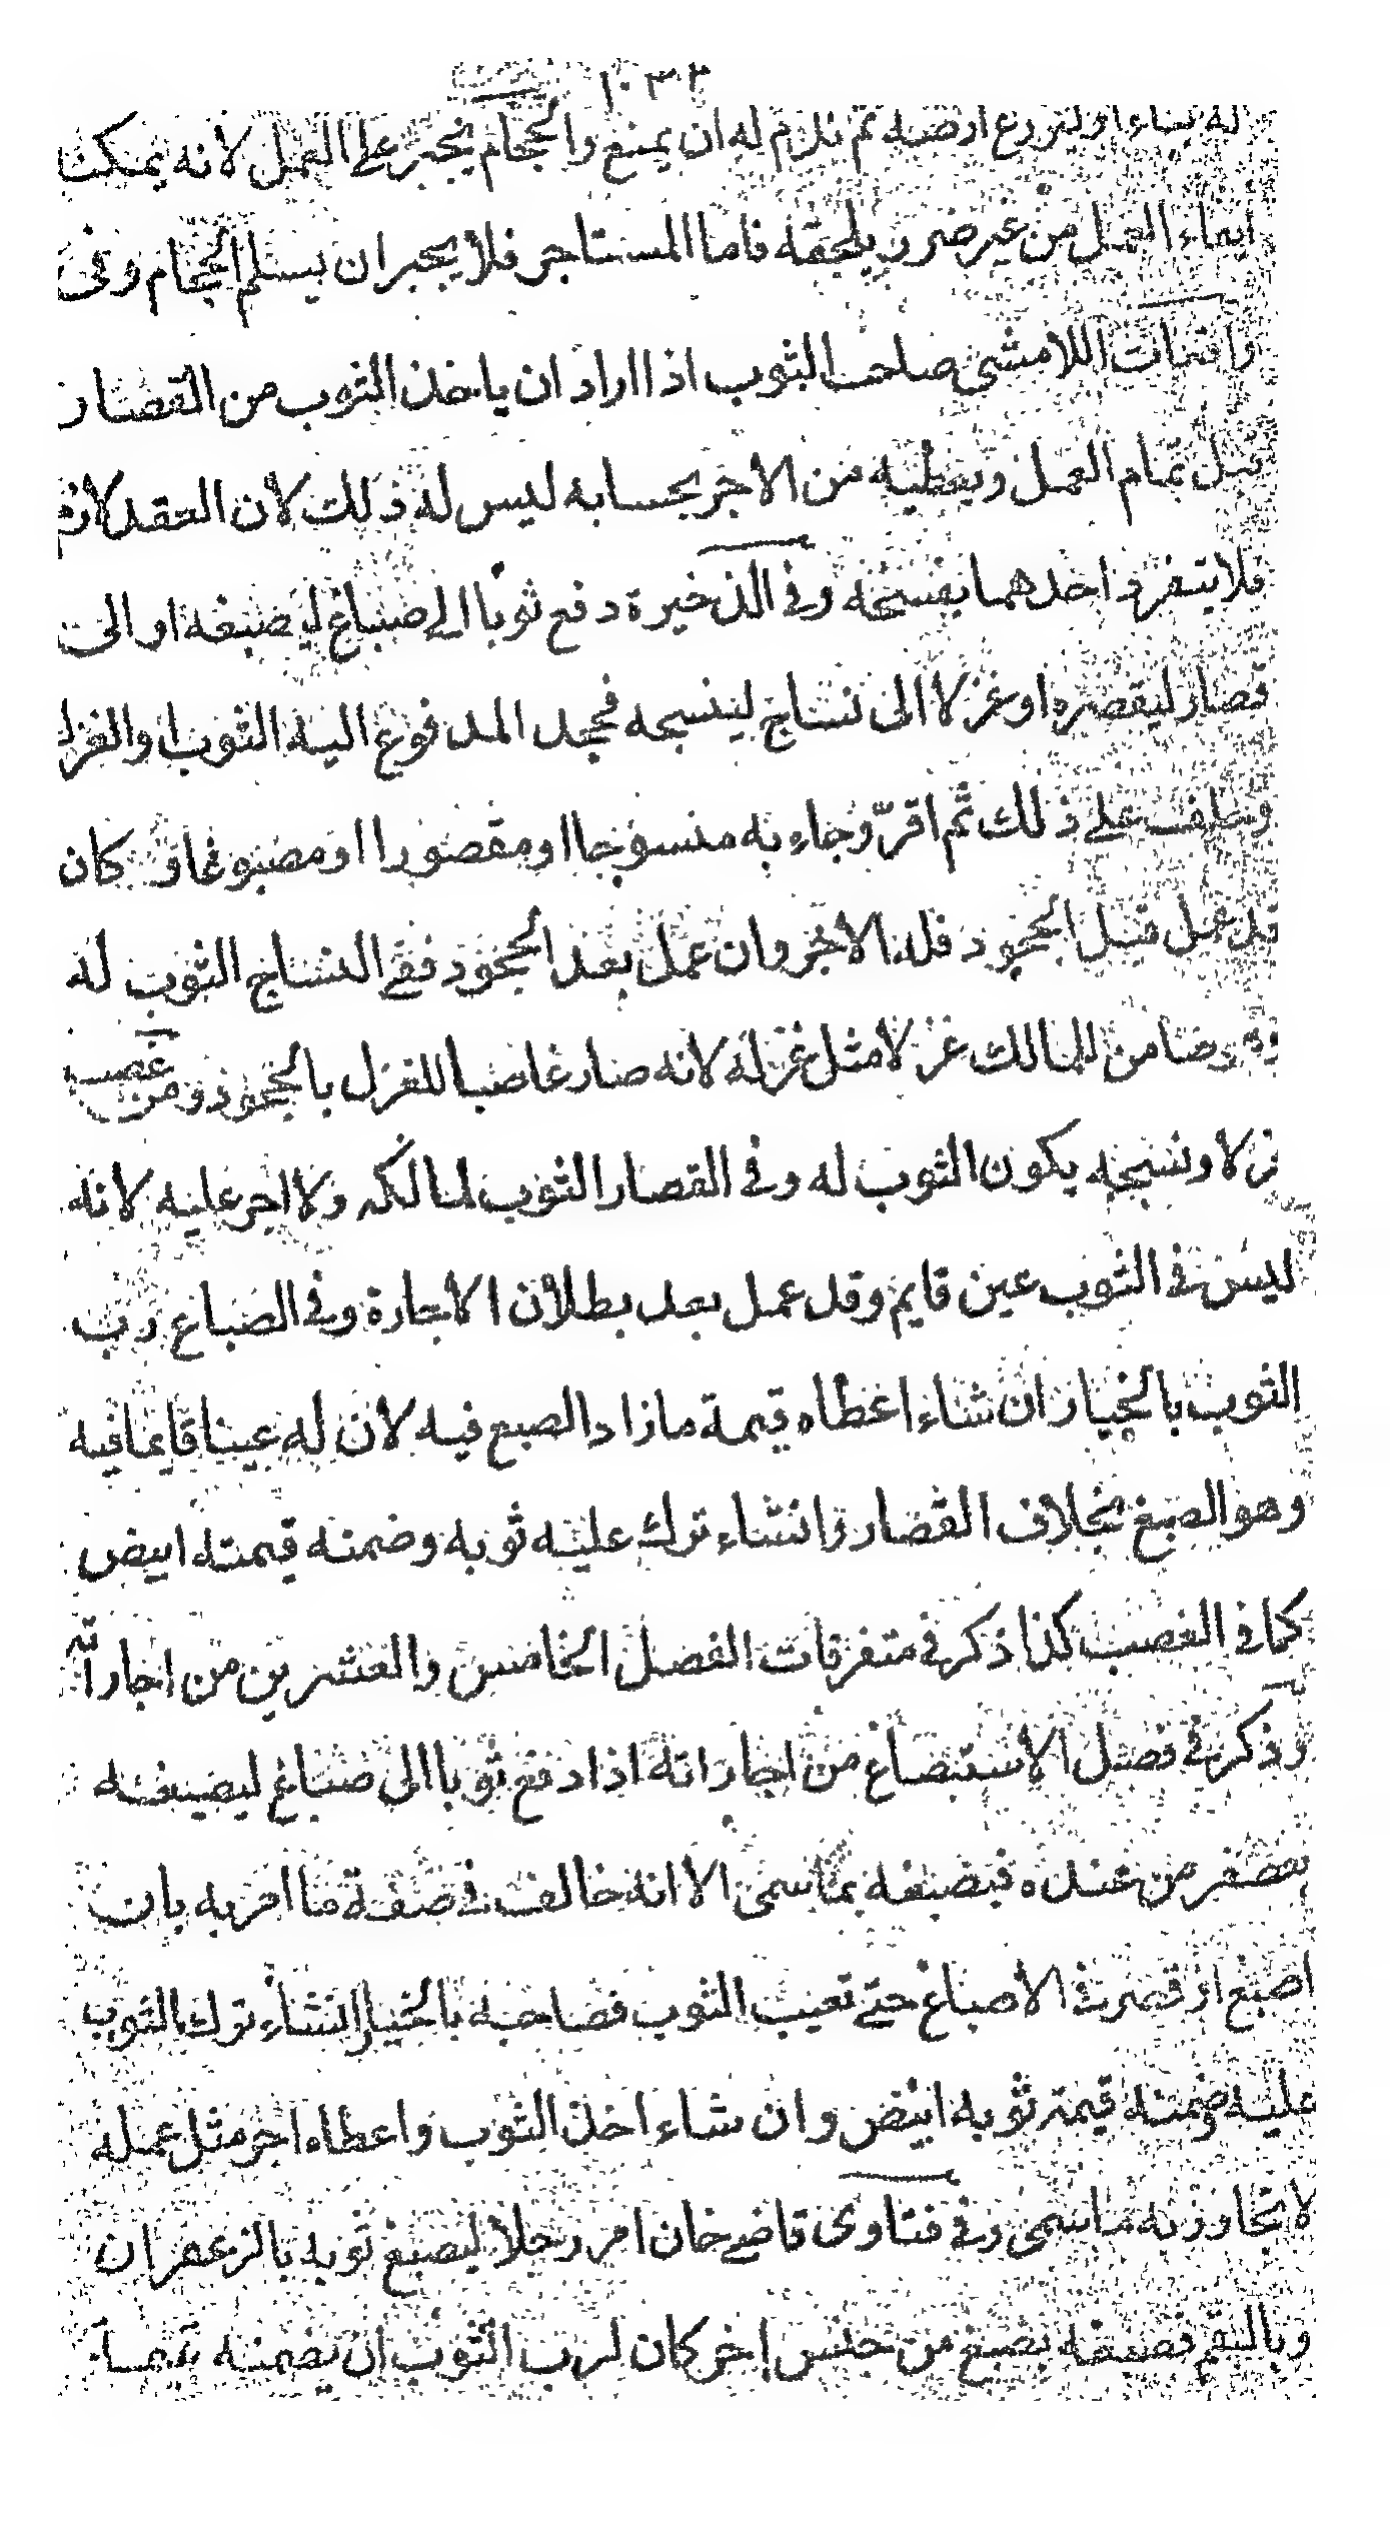 ١٠٣٢
له بناء او ليزرع ارضه ثم ندم له ان يمنع والحجام يجبر على العمل لانه يمكث
ايفاء العمل من غير ضرر يلحقه فاما المستاجر فلا يجبر ان يسلم الحجام وفى
واقعات اللامشى صاحب الثوب اذا اراد ان ياخذ الثوب من القصار
قبل تمام العمل ويعطيه من الاجر بحسابه ليس له ذلك لان العقد لازم
فلا يتفرد احدهما بفسخه وفي الذخيرة دفع ثوبا الى صباغ ليصبغه او الى
قصار ليقصره او غزلا الى نساج لينسجه فجحد المدفوع اليه الثوب او الغزل
وحلف على ذلك ثم اقرّ وجاء به منسوجا او مقصورا او مصبوغا و كان
قد عمل قبل الجحود فله الاجر وان عمل بعد الجحود ففي النساج الثوب له
وضامن للمالك غزلا مثل غزله لانه صار غاصبا للغزل بالجحود ومن غصب
غزلا ونسجه يكون الثوب له وفي القصار الثوب لمالكه ولا اجر عليه لانه
ليس في الثوب عين قايم وقد عمل بعد بطلان الاجارة وفي الصباغ رب
الثوب بالخيار ان شاء اعطاه قيمة ما زاد الصبغ فيه لان له عينا قايما فيه
وهو الصبغ بخلاف القصار وان شاء ترك عليه ثوبه وضمنه قيمته ابيض
كما في الغصب كذا ذكر في متفرقات الفصل الخامس والعشرين من اجاراته
وذكر في فصل الاستصناع من اجاراته اذا دفع ثوبا الى صباغ ليصبغه
بعصفر من عنده فصبغه بما سمى الا انه خالف في صفة ما امر به بان
اصبغ او قصر في الاصباغ حتى تعيب الثوب فصاحبه بالخيار ان شاء ترك الثوب
عليه وضمنه قيمة ثوبه ابيض وان شاء اخذ الثوب واعطاه اجر مثل عمله
لا يجاوز به ما سمى وفي فتاوى قاضي خان امر رجلا ليصبغ ثوبه بالزعفران
وبالبقم فصبغه بصبغ من جنس اخر كان لرب الثوب ان يضمنه قيمة